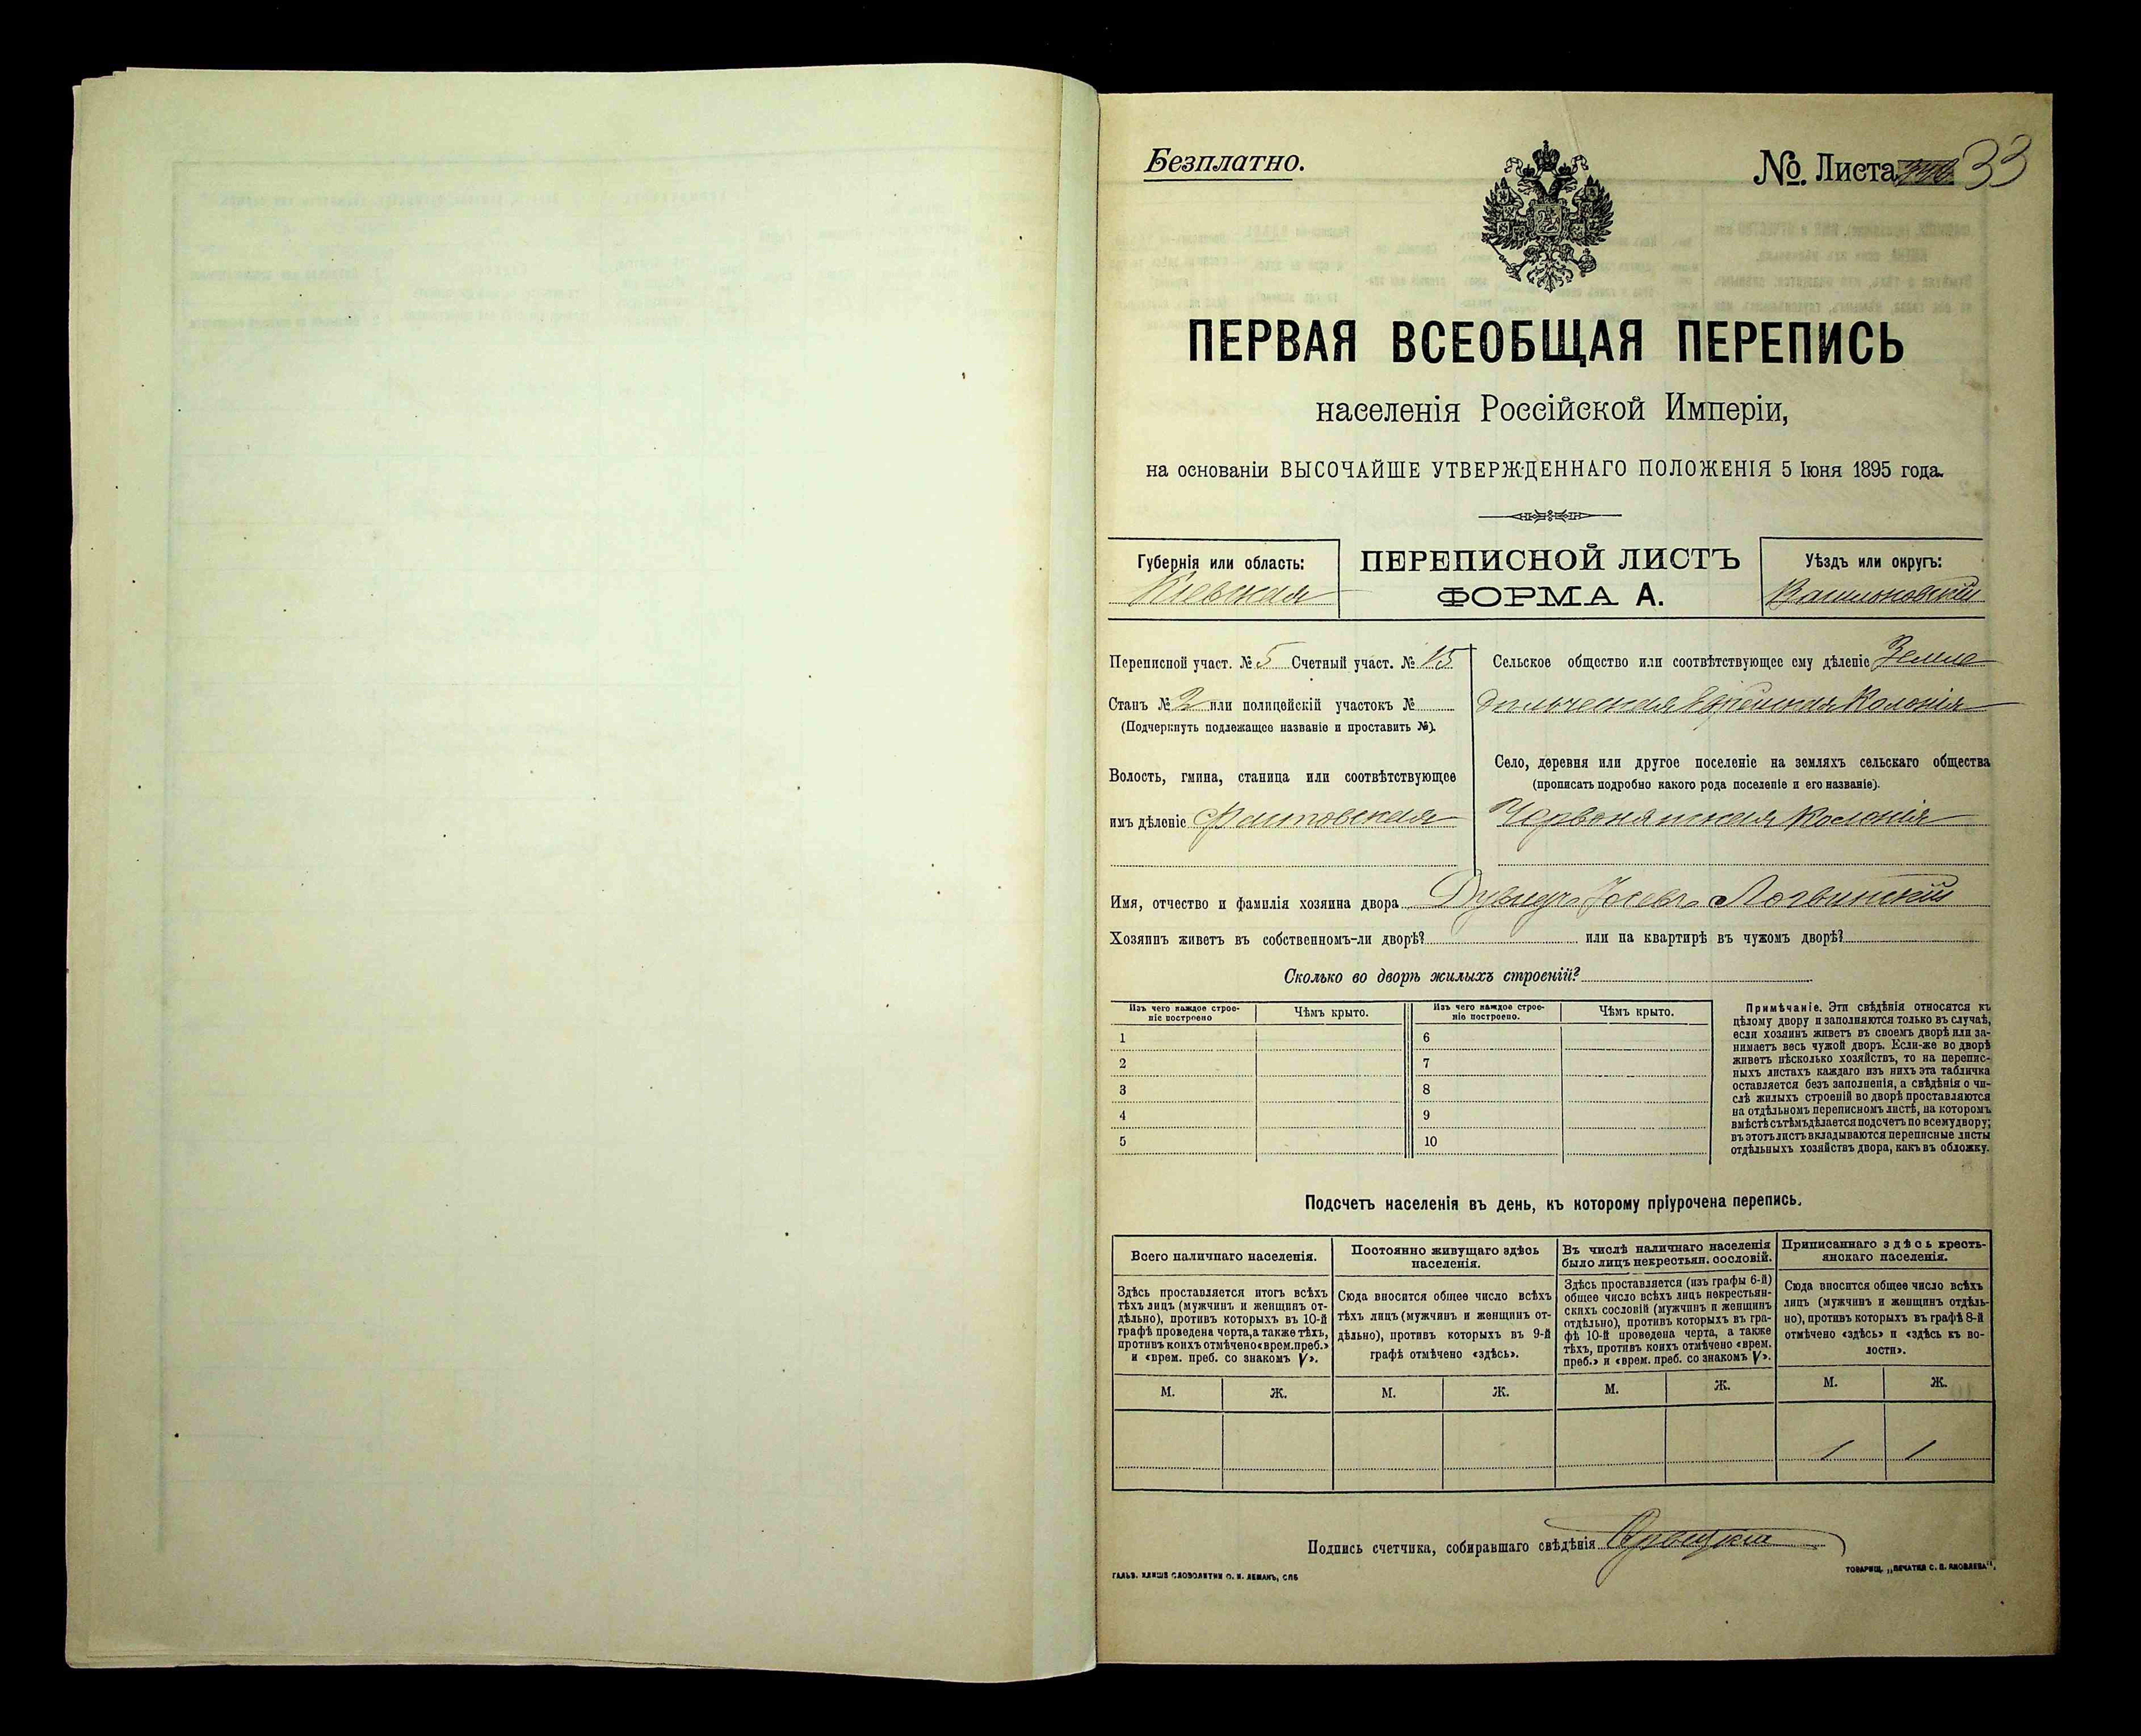 Безплатно.
№ Листа 33
ПЕРВАЯ ВСЕОБЩАЯ ПЕРЕПИСЬ
населенія Россійской Имперіи,
на основаніи ВЫСОЧАЙШЕ УТВЕРЖДЕННАГО ПОЛОЖЕНІЯ 5 Іюня 1895 года.
Губернія или область:
Кіевская
ПЕРЕПИСНОЙ ЛИСТЪ
ФОРМА А.
Уѣздъ или округъ:
Васильковскій
Переписной участ. № 5 Счетный участ. № 15
Станъ № 2 или полицейскій участокъ №
(Подчеркнуть подлежащее названіе и проставить №).
Волость, гмина, станица или соотвѣтствующее
имъ дѣленіе Фастовская
Сельское общество или соотвѣтствующее ему дѣленіе Земле
дѣльческая Еврейская Колонія
Село, деревня или другое поселеніе на земляхъ сельскаго общества
(прописать подробно какого рода поселеніе и его названіе).
Червонянская Колонія
Имя, отчество и фамилія хозяина двора Логвинскій
Хозяинъ живетъ въ собственномъ-ли дворѣ? или на квартирѣ въ чужомъ дворѣ?
Сколько во дворѣ жилыхъ строеній?
Изъ чего каждое строе-
ніе построено
Чѣмъ крыто.
Изъ чего каждое строе-
ніе построено.
Чѣмъ крыто.
1 6
2 7
3 8
4 9
5 10
Примѣчаніе. Эти свѣдѣнія относятся къ
цѣлому двору и заполняются только въ случаѣ,
если хозяинъ живетъ въ своемъ дворѣ или за-
нимаетъ весь чужой дворъ. Если-же во дворѣ
живетъ нѣсколько хозяйствъ, то на перепис-
ныхъ листахъ каждаго изъ нихъ эта табличка
оставляется безъ заполненія, а свѣдѣнія о чи-
слѣ жилыхъ строеній во дворѣ проставляются
на отдѣльномъ переписномъ листѣ, на которомъ
вмѣстѣ съ тѣмъ дѣлается подсчетъ по всему двору;
въ этотъ листъ вкладываются переписные листы
отдѣльныхъ хозяйствъ двора, какъ въ обложку.
Подсчетъ населенія въ день, къ которому пріурочена перепись.
Всего наличнаго населенія.
Здѣсь проставляется итогъ всѣхъ
тѣхъ лицъ (мужчинъ и женщинъ от-
дѣльно), противъ которыхъ въ 10-й
графѣ проведена черта, а также тѣхъ,
противъ коихъ отмѣчено «врем. преб.»
и «врем. преб. со знакомъ V».
Постоянно живущаго здѣсь
населенія.
Сюда вносится общее число всѣхъ
тѣхъ лицъ (мужчинъ и женщинъ от-
дѣльно), противъ которыхъ въ 9-й
графѣ отмѣчено «здѣсь».
Въ числѣ наличнаго населенія
было лицъ некрестьян. сословій.
Здѣсь проставляется (изъ графы 6-й)
общее число всѣхъ лицъ некрестьян-
скихъ сословій (мужчинъ и женщинъ
отдѣльно), противъ которыхъ въ гра-
фѣ 10-й проведена черта, а также
тѣхъ, противъ коихъ отмѣчено «врем.
преб.» и «врем. преб. со знакомъ V».
Приписаннаго здѣсь кресть-
янскаго населенія.
Сюда вносится общее число всѣхъ
лицъ (мужчинъ и женщинъ отдѣль-
но), противъ которыхъ въ графѣ 8-й
отмѣчено «здѣсь» и «здѣсь къ во-
лости».
М. Ж. М. Ж. М. Ж. М. Ж.
1 1
Подпись счетчика, собиравшаго свѣдѣнія
ГАЛЬВ. КЛИШЕ СЛОВОЛИТНИ О. И. ЛЕМАНЪ, СПБ
ТОВАРИЩ. „ПЕЧАТНЯ С. П. ЯКОВЛЕВА“.